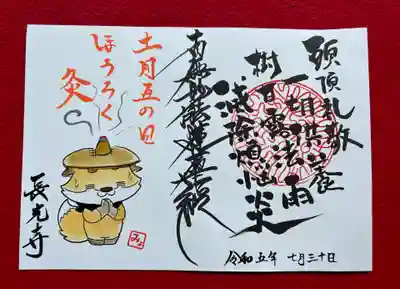 頭頂礼敬
供養
澍甘露法雨
滅除煩悩炎
南無妙法蓮華経
土用丑の日
ほうろく
灸
長光寺
令和五年 七月三十日